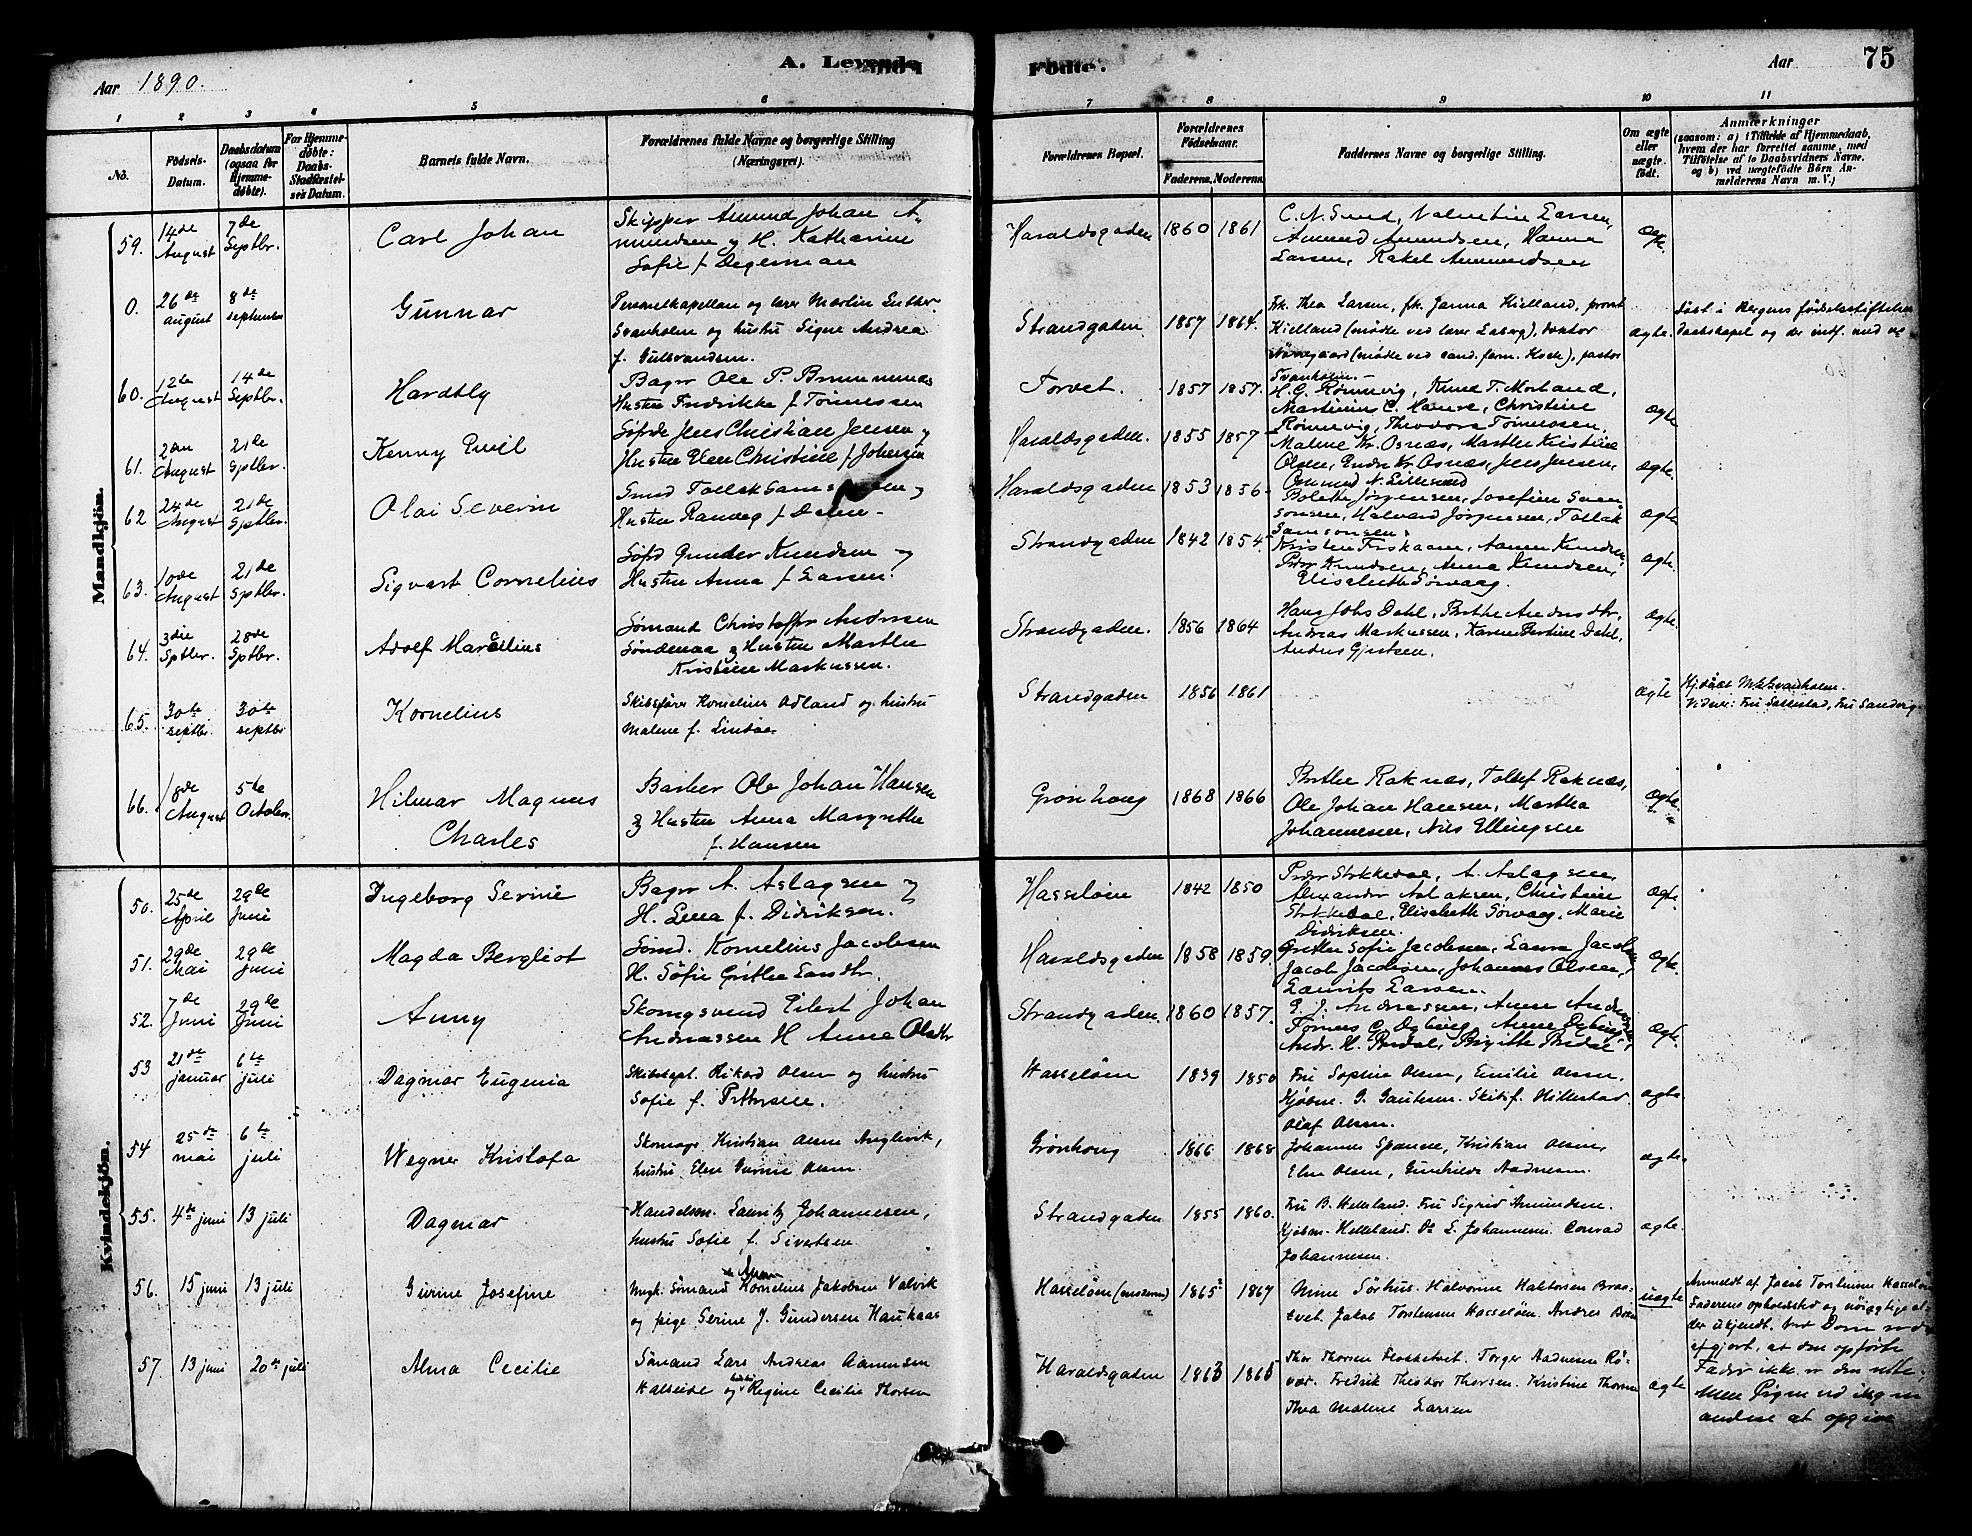 Aar 1890.
A. Levende
Fødte.
Aar
75
1 2 3 4 5 6 7 8 9 10 11
No.
Fødsels-
Datum.
Daabsdatum
(ogsaa for
Hjemme-
døbte).
For Hjemme-
døbte:
Daabs-
Stadfæstel-
ses Datum.
Barnets fulde Navn.
Forældrenes fulde Navne og borgerlige Stilling
(Næringsvei).
Forældrenes Bopæl.
Forældrenes
Fødselsaar.
Faderens. Moderens.
Faddernes Navne og borgerlige Stilling.
Om ægte
eller
uægte
født.
Anmærkninger
(saasom: a) i Tilfælde af Hjemmedaab,
hvem der har forrettet samme, med
Tilføielse af to Daabsvidners Navne,
og b) ved uægtefødte Børn An-
melderens Navn m. V.)
Mandkjøn.
59.
14de
August
7de
Septbr.
Carl Johan
Skipper Amund Johan A-
mundsen og H. Katharine
Sofie f. Degerman
Haraldsgaden
1860 1861
C. N. Sund, Valentin Larsen,
Amund Amundsen, Hanna
Larsen, Rakel Ammundsen
ægte
0.
26de
august
8de
september
Gunnar
Personelkapellan og lærer Martin Luther
Svanholm og hustru Signe Andrea
f. Gulbrandsen.
Strandgaden
1857 1864.
Frk. Thea Larsen, frk. Janna Kielland, provst
Kielland (mødte ved lærer Esberg), doktor
Nørregaard (mødte ved cand. farm. Koch), pastor
Svanholm.
ægte.
født i Bergens fødselsstiftelse
Daabskapel og der intf. med no
60.
12te
August
14de
Septbr.
Hardtly
Bager Ole P. Brummenæs
Hustru Fredrikke f. Tønnessen
Torvet.
1857 1857.
H. G. Rønnevig, Knud T. Morland,
Martinius C. Hanse, Christine
Rønnevig, Theodora Tønnesen.
ægte
61.
2den
August
21de
Sptbr.
Kenny Emil
Søfde Jens Christian Jensen og
Hustru Elen Christine f. Johnsen
Haraldsgaden.
1855 1857
Malene Kr. Osnæs, Marthe Kristine
Olsen, Endre Kr. Osnæs, Jens Jensen,
Ommund N. Lillesund
ægte.
62
24de
August
21de
Sptbr.
Olai Severin
Smed Tollak Samsonsen og
Hustru Ranveig f. Dalen
Haraldsgaden
1853 1856
Bolette Jørgensen, Josefine Sam-
sonsen, Halvard Jørgensen, Tollak
Samsonsen.
ægte
63.
10de
August
21de
Sptbr.
Sigvart Cornelius
Søfd Gunder Knudsen og
Hustru Anna f. Larsen.
Strandgaden
1842 1854.
Kristen Fiskaaen, Aanen Knudsen,
Peder Knudsen, Anna Knudsen,
Elisabeth Sørvaag.
ægte.
64.
3die
Sptbr.
28de
Sptbr.
Adolf Marcelius
Sømand Christoffer Andersen
Søndenaa og Hustru Marthe
Kristine Markussen.
Strandgaden.
1856 1864
Hans Johs Dahl, Berthe Andersdtr,
Andreas Markussen, Karen Bertine Dahl,
Anders Gjertsen.
ægte.
65.
30te
septbr.
30te
septbr
Kornelius
Skibsfører Kornelius Odland og hustru
Malene f. Lindøe
Strandgaden
1856 1861
ægte
Hj.døbt M.L. Svanholm.
Vidner: Fru Sællestad, Fru Sandvig
66.
18de
August
5te
Octobr.
Hilmar Magnus
Charles
Barber Ole Johan Hansen
og Hustru Anna Margrethe
f. Hansen
Grønhoug
1868 1866
Berthe Raknæs, Tollef Raknæs,
Ole Johan Hansen, Martha
Johannesen, Nils Ellingsen
ægte.
Kvindekjøn.
50.
25de
April
29de
Juni
Ingeborg Serine
Bager A. Aslagsen og
H. Lena f. Didriksen.
Hasseløen
1842 1850
Peder Stokkedal, A. Aslagsen,
Alexander Aslaksen, Christine
Stokkedal, Elisabeth Sørvaag, Marie
Didriksen.
ægte.
51.
29de
Mai
29de
Juni
Magda Bergliot
Sømd. Kornelius Jacobsen
H. Sofie Grethe Larsdtr.
Haraldsgaden
1858 1859.
Grethe Sofie Jacobsen, Laura Jacobsen
Jacob Jacobsen, Johannes Olsen,
Laurits Larsen.
ægte.
52.
7de
Juni
29de
Juni
Anny
Skomgsvend Eilert Johan
Andreassen H Anna Olsdtr
Strandgaden.
1860 1857.
E. J. Andreassen, Anne Andreassen
Tønnes C. Dybing, Anne Dybing,
Andr. H. Bredal, Birgitte Bredal,
ægte.
53
21de
januar
6te
juli
Dagmar Eugenia
Skibskapt. Rikard Olsen og hustru
Sofie f. Pettersen.
Hasseløen
1839 1850
Fru Sophie Olsen, Emilie Olsen.
Kjøbm. G. Gautesen. Skibsf. Hillestad.
Olaf Olsen.
ægte
54
25de
mai
6te
juli
Wegner Kristofa
Skomager Kristian Olsen Anglevik,
hustru Elen Gurine Olsen.
Grønhoug
1866 1868
Johannes Spanne, Kristian Olsen,
Elen Olsen, Gunhilde Aadnesen.
ægte.
55.
4de juni
13 juli
Dagmar
Handelsm. Lauritz Johannesen,
hustru Sofie f. Sivertsen.
Strandgaden
1855 1860.
Fru B. Helleland. Fru Sigrid Amundsen.
Kjøbm. Helleland. Do L. Johannesen. Conrad
Johannesen.
ægte.
56.
15 juni
13 juli
Gurine Josefine
Ungk. Sømand Kornelius Jakobsen Valvik
og pige Serine J. Gundersen Haukaas
Hasseløen
1865 1867
Mine Sørhus. Halvorine Haltorsen Braa-
tvet. Jakob Torstensen Hasseløen. Andreas
uægte
Anmeldt af Jacob Torstensen Hasseløen
Faderens opholdssted og nøiagtige al-
der ukjendt. Ved Dom
afgjort, at den opførte
Fader ikke er den rette
Men Pigen ved ikke en
anden at opgive
57.
13 juni
20de juli
Alma Cecilie
Sømand Lars Andreas Aamundsen
Halseide og hustru Regine Cecilie Thorsen
Haraldsgaden
1863 1865
Thor Thorsen Flokketvet. Torger Aadnesen Rø-
vær. Fredrik Theodor Thorsen. Kristine Thorsen
Thea Malene Larsen
ægte